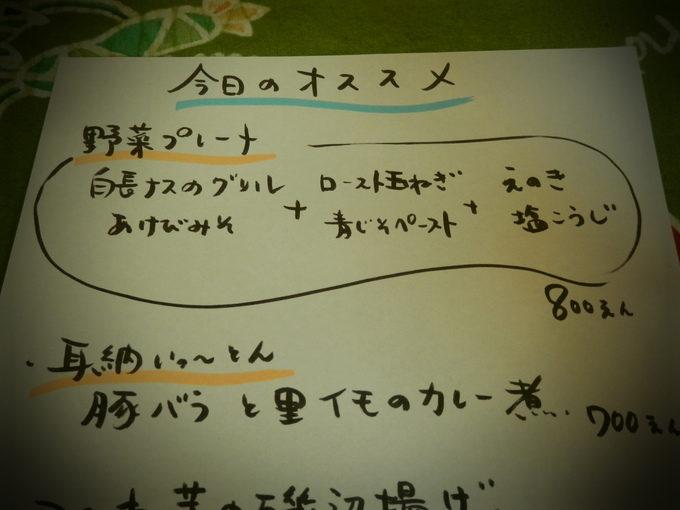 今日のオススメ
野菜プレート
自長ナスのグリル + ロースト玉ねぎ + えのき
あけびみそ 青じそペースト 塩こうじ
800えん
・耳納いっ〜とん
豚バラと里イモのカレー煮 700えん
の磯辺揚げ